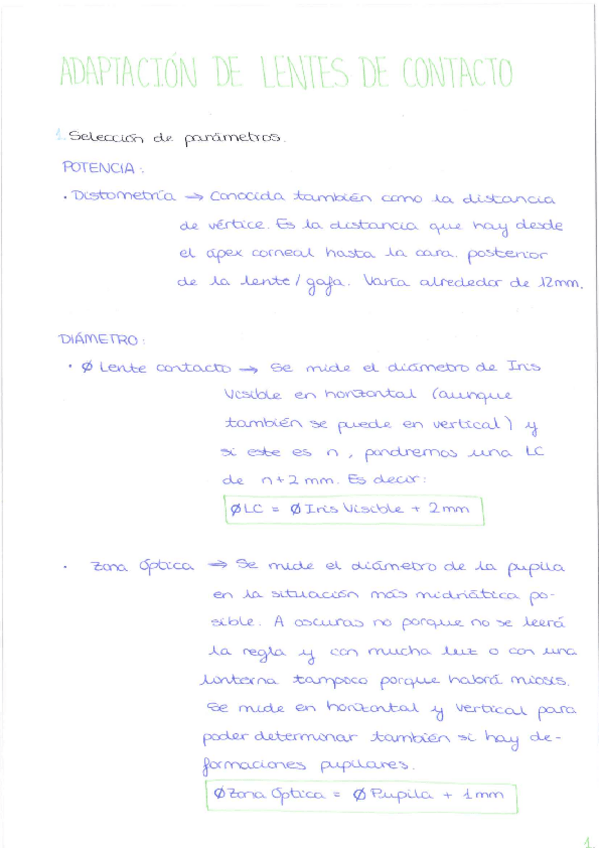 ADAPTACIÓN DE LENTES DE CONTACTO
1. Selección de parámetros.
POTENCIA:
· Distometría → Conocida también como la distancia
de vértice. Es la distancia que hay desde
el ápex corneal hasta la cara posterior
de la lente/gafa. Varía alrededor de 12mm.
DIÁMETRO:
· Ø Lente contacto → Se mide el diámetro de Iris
Visible en horizontal (aunque
también se puede en vertical) y
si este es n, pondremos una LC
de n+2 mm. Es decir:
ØLC = Ø Iris Visible + 2mm
· Zona Óptica → Se mide el diámetro de la pupila
en la situación más midriática po-
sible. A oscuras no porque no se leerá
la regla y con mucha luz o con una
linterna tampoco porque habrá miosis.
Se mide en horizontal y vertical para
poder determinar también si hay de-
formaciones pupilares.
ØZona Óptica = Ø Pupila + 1mm
1.